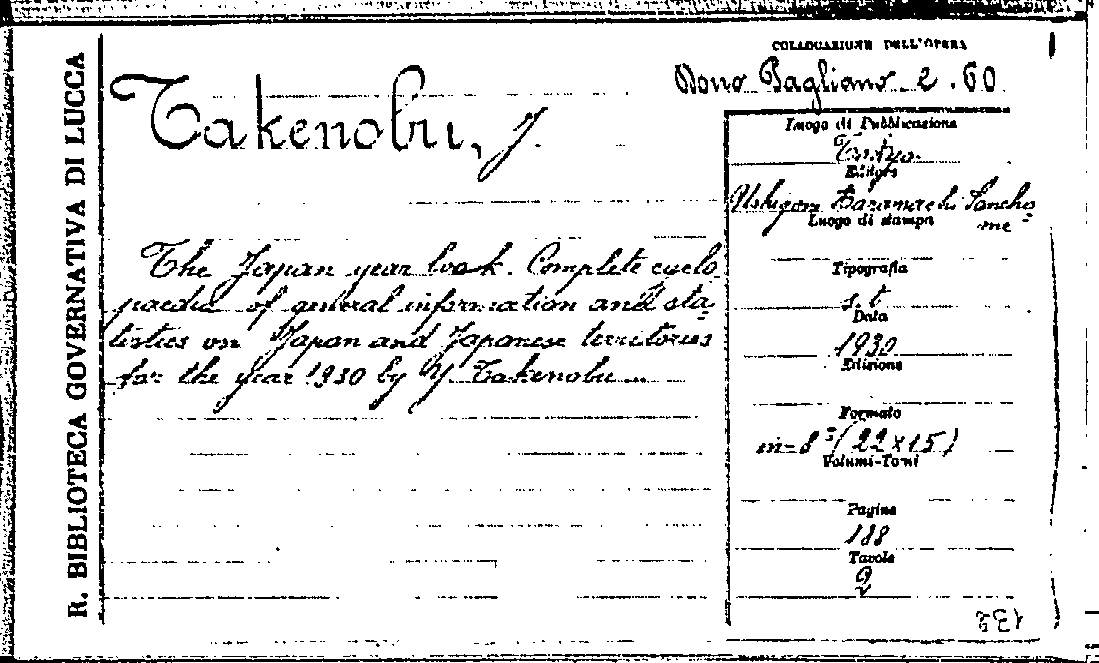 R. BIBLIOTECA GOVERNATIVA DI LUCCA
COLLOCAZIONE DELL'OPERA
Dono Pagliano 2.60
Takenobu, J.
The Japan year book. Complete cyclo
paedia of general information and sta-
tistics on Japan and Japanese territories
for the year 1930 by Y. Takenobu...
Luogo di Pubblicazione
Tokyo
Editore
Ushigome Sancho-
me
Luogo di stampa
Tipografia
s.t
Data
1930
Edizione
Formato
in-8° (22x15)
Volumi-Tomi
Pagine
188
Tavole
2